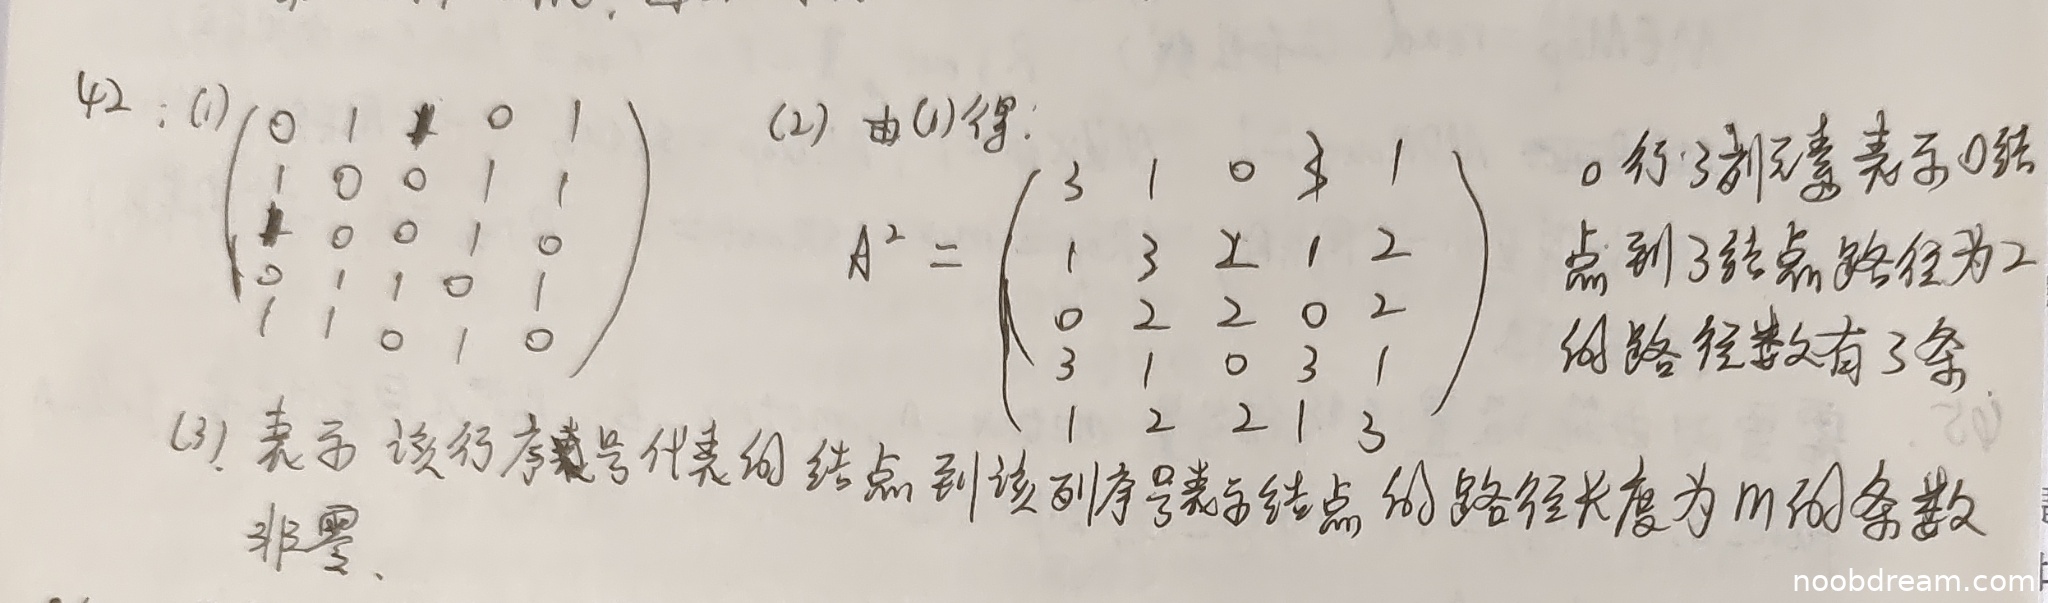 42：(1)
0 1 1 0 1
1 0 0 1 1
1 0 0 1 0
0 1 1 0 1
1 1 0 1 0
(2) 由(1)得：
A² =
3 1 0 3 1
1 3 2 1 2
0 2 2 0 2
3 1 0 3 1
1 2 2 1 3
0行3列元素表示0结
点到3结点路径为2
的路径数有3条.
(3). 表示该行序号代表的结点到该列序号表示结点的路径长度为m的条数
非零、
noobdream.com